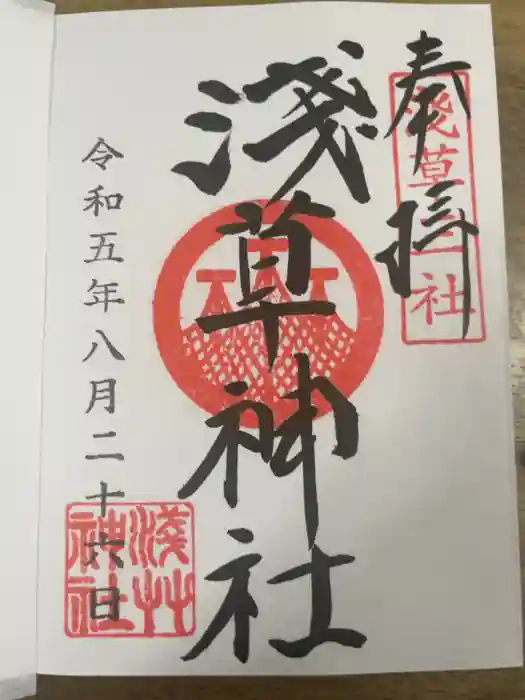 奉拝
浅草一社
淺草神社
令和五年八月二十六日
淺艸神社